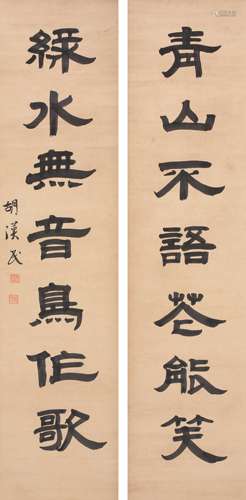 青山不語芲能笑
綠水無音鳥作歌
胡漢民